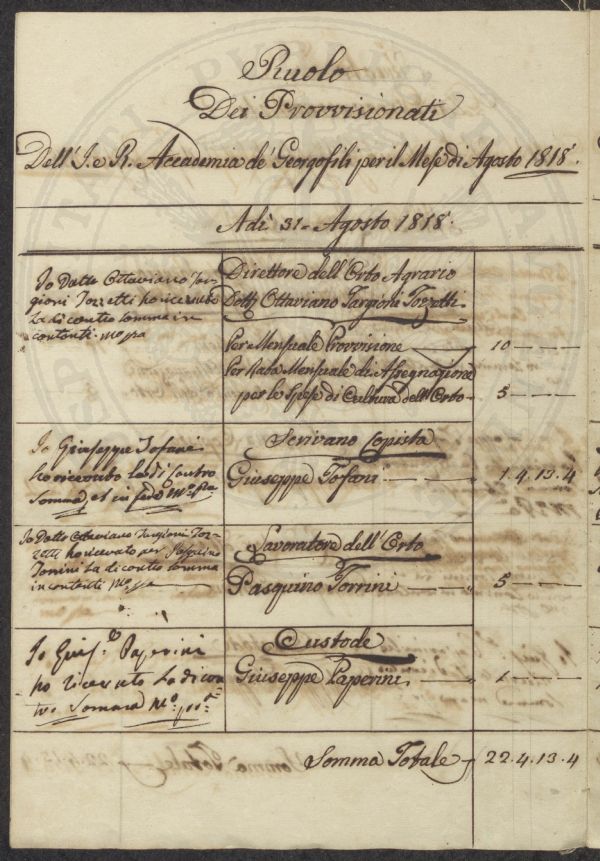 Ruolo
Dei Provvisionati
Dell' I. e R. Accademia de' Georgofili per il Mese di Agosto 1818.
Adì 31 - Agosto 1818.
Io Dotto Ottaviano Tar-
gioni Tozzetti ho ricevuto
la di contro somma in
contanti. Mo pa
Direttore dell' Orto Agrario
Dott. Ottaviano Targioni Tozzetti.
Per Mensuale Provvisione 10 - - -
Per Rata Mensuale di Assegnazione
per le Spese di Cultura dell' Orto 5 - - -
Io Giuseppe Tofani
ho ricevuto la di contro
somma, et in fede Mo. pa.
Scrivano Copista
Giuseppe Tofani 1. 4. 13. 4
Io Dotto Ottaviano Targioni Toz-
zetti ho ricevuto per Pasquino
Torrini la di contro somma
in contanti Mo pa
Lavoratore dell' Orto
Pasquino Torrini 5 - - -
Io Giuse. Paperini
ho ricevuto la di con
tro Somma Mo. pp.a
Custode
Giuseppe Paperini 1 - - -
Somma Totale 22. 4. 13. 4